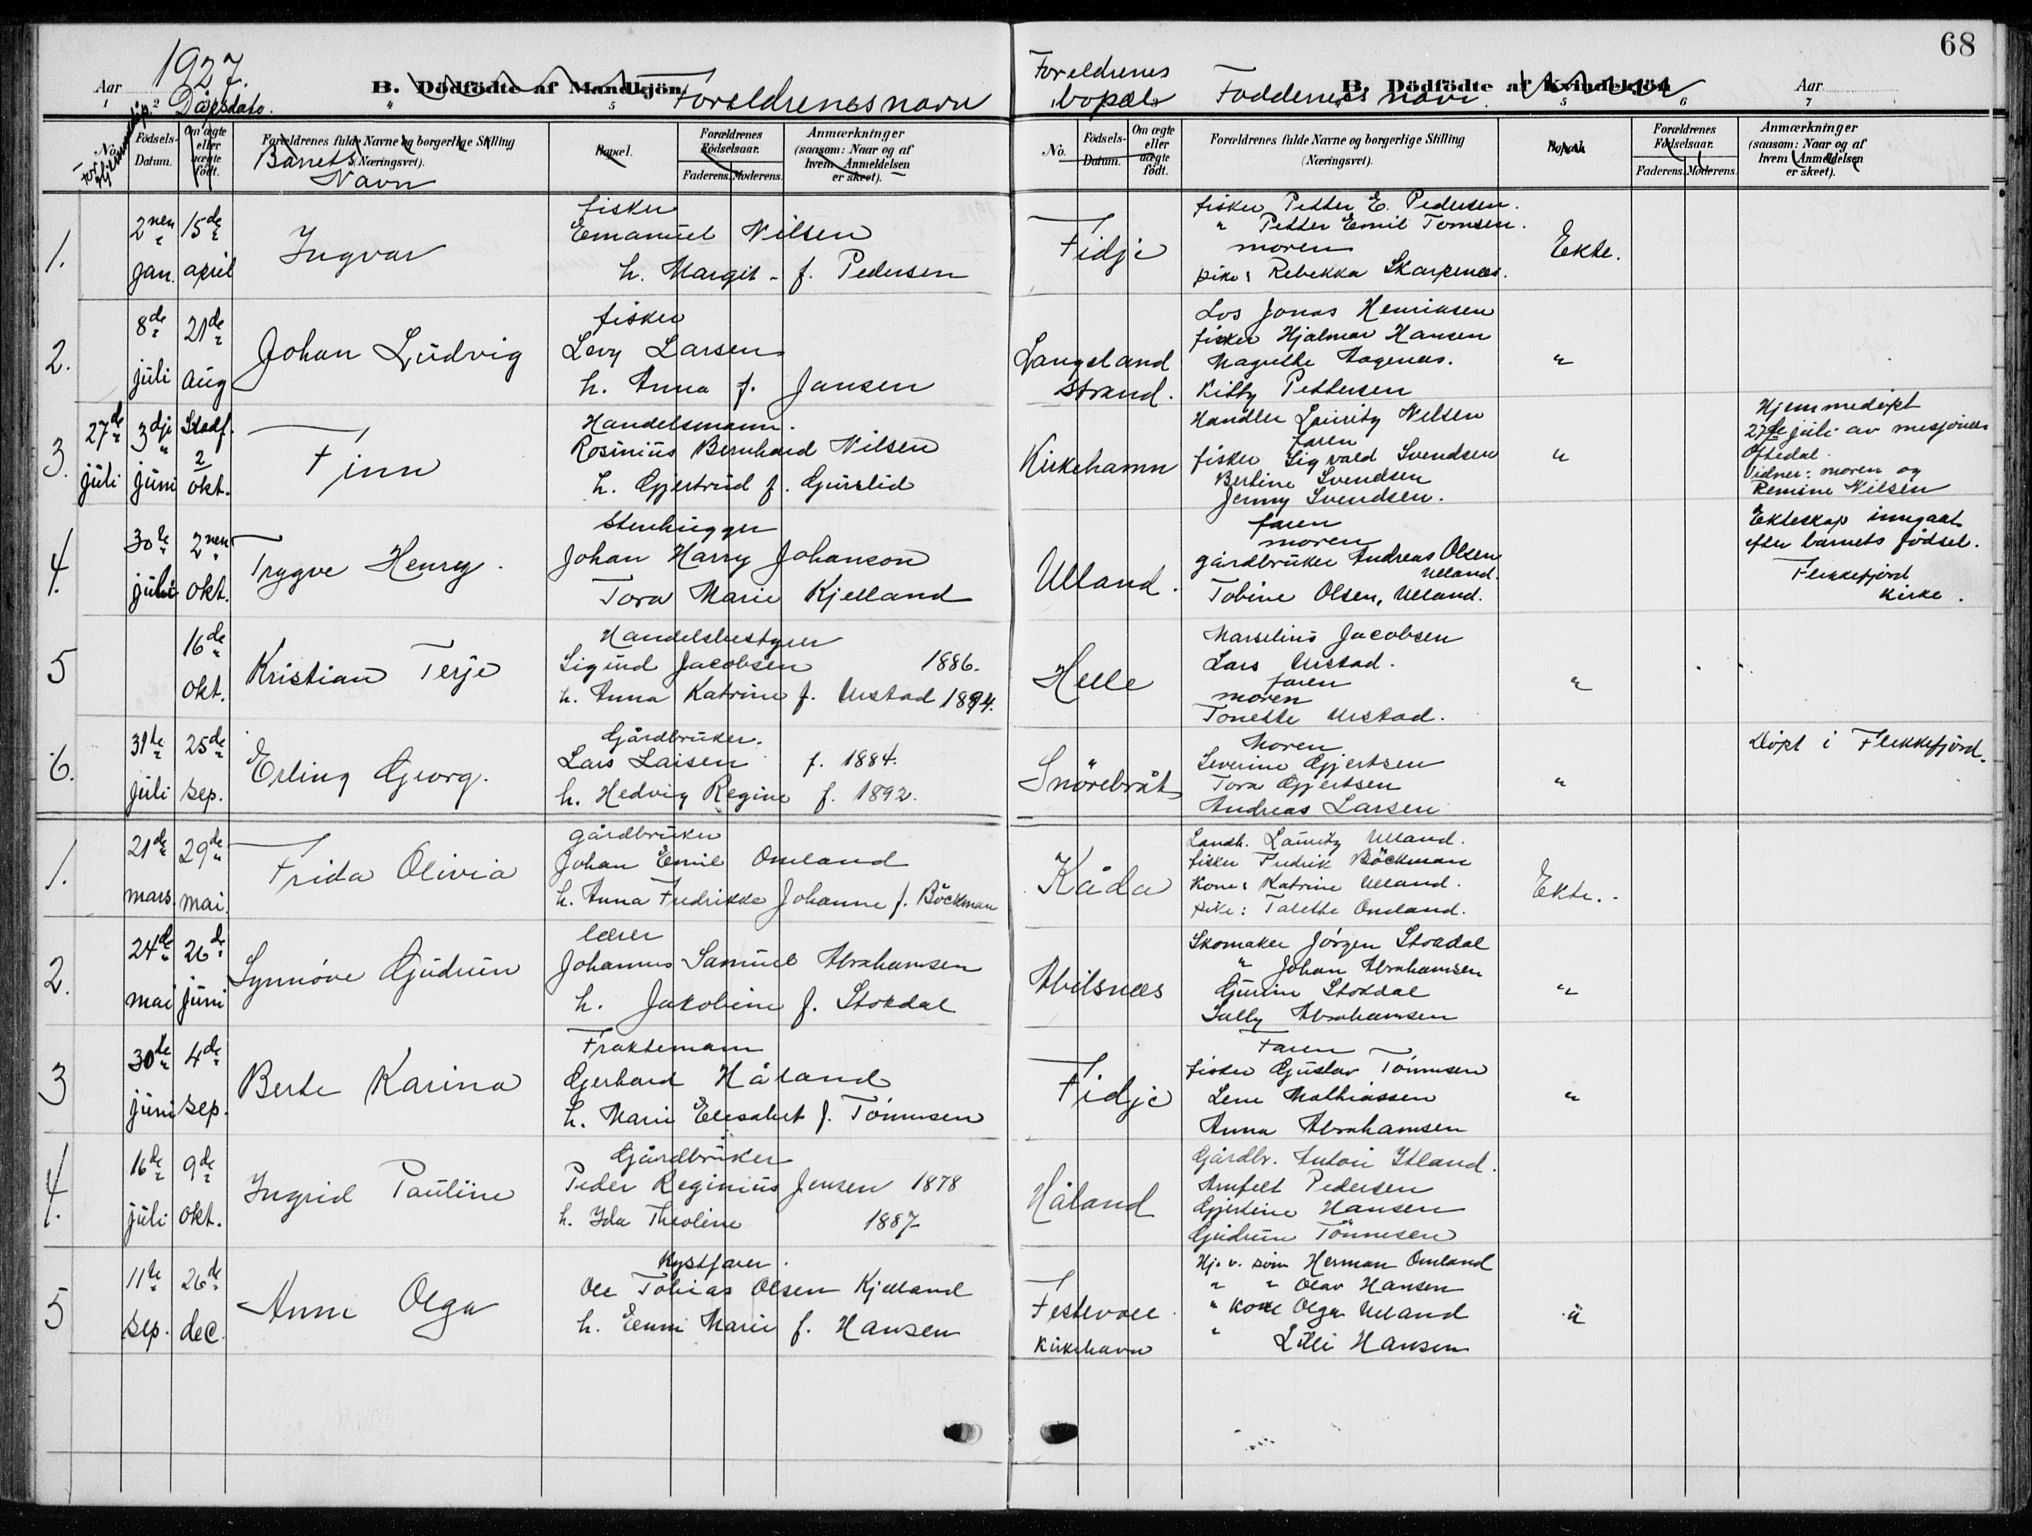 1927.
Aar
1
B. Dödfödte af Mandkjön
Foreldrenes navn
No.
Fødsels-Datum.
2
Dåpsdato.
Om ægte eller uægte født.
Forældrenes fulde Navne og borgerlige Stilling
(Næringsvei).
Barnets Navn
Bopæl.
5
Forældrenes Fødselsaar.
Faderens. Moderens.
Anmærkninger
(saasom: Naar og af hvem Anmeldelsen er skeet).
1.
2nen jan.
15de april
Ingvar
fisker
Emanuel Nilsen
h. Margit - f. Pedersen
2.
8de juli
21de aug
Johan Ludvig
fisker
Levy Larsen
h. Anna f. Jansen
3.
27de juli
3dje juni
Stadf. 2 okt.
Finn
Handelsmann.
Rosinius Bernhard Nilsen
h. Gjertrud f. Gurslid
4.
30te juli
2nen okt.
Trygve Henry.
Stenhugger
Johan Harry Johanson
Tora Marie Kjelland
5
16de okt.
Kristian Terje
Handelsbestyrer
Sigurd Jacobsen 1886.
h. Anna Katrine f. Urstad 1894.
6.
31te juli
25de sep.
Erling Georg.
Gårdbruker.
Lars Larsen f. 1884.
h. Hedvig Regine f. 1892.
1.
21de mars.
29de mai.
Frida Olivia
gårdbruker
Johan Emil Omland
h. Anna Fredrikke Johanne f. Böckman
2.
24de mai
26de juni
Synnøve Gudrun
lærer
Johannes Samuel Abrahamsen
h. Jakobine f. Stordal
3
30de juni
4de sep.
Berte Karina
Fraktemann
Gerhard Håland
h. Marie Elesabet f. Tønnesen
4.
16de juli
9de okt.
Ingrid Pauline
Gårdbruker
Peder Reginius Jensen 1878
h. Ida Theoline 1887
5
11te sep.
26de dec.
Anne Olga
Kystfarer.
Ole Tobias Olsen Kjelland
h. Emmi Marie f. Hansen
68
Foreldrenes bopæl
B. Dödfödte af Kvindekjön
Faddernes navn.
Aar
7
No.
Fødsels-Datum.
Om ægte eller uægte født.
Forældrenes fulde Navne og borgerlige Stilling
(Næringsvei).
Bopæl.
5
6
Forældrenes Fødselsaar.
Faderens. Moderens.
Anmærkninger
(saasom: Naar og af hvem Anmeldelsen er skeet).
Fidje
fisker Petter E. Pedersen.
" Petter Emil Tomsen.
moren
pike: Rebekka Skarpenes.
Ekte.
Langeland strand.
Los Jonas Henriksen
fisker Hjalmar Hansen
Magrethe Aagenes.
Kitty Pettersen
"
Kirkehamn
Handler Lauritz Nilsen
faren
fisker Sigvald Svendsen
Berline Svendsen
Jenny Svendsen.
"
Hjemmedøpt
27de juli av
Oftedal.
Vidner: moren og
Remine Nilsen
Ulland.
faren
moren
gårdbruker Andreas Olsen Ulland.
Tobine Olsen, Ulland.
Ekteskap inngaat
efter barnets fødsel.
Flekkefjord
Kirke.
Helle
Marselius Jacobsen
Lars Urstad.
faren
moren
Tonette Urstad.
"
Snørebråt
Moren
Severine Gjertsen
Tora Gjertsen
Andreas Larsen
"
Døpt i Flekkefjord.
Kåda
Landh. Lauritz Ulland.
fisker Fredrik Böckman
Kone: Katrine Ulland.
pike: Talette Omland.
Ekte.
Abilsnes
Skomaker Jørgen Stordal
" Johan Abrahamsen
Gurine Stordal
Sally Abrahamsen
"
Fidje
Faren
fisker Gustav Tønnesen
Lene Mathiassen
Anna Abrahamsen
"
Håland
Gårdbr. Anton Itland.
Arnfelt Pedersen
Gjertine Hansen
Gudrun Tønnesen
Festevoll
Kirkehavn
Hj. v. søn Herman Omland
" " Olav Hansen
" kone Olga Ulland
" Lilli Hansen
"